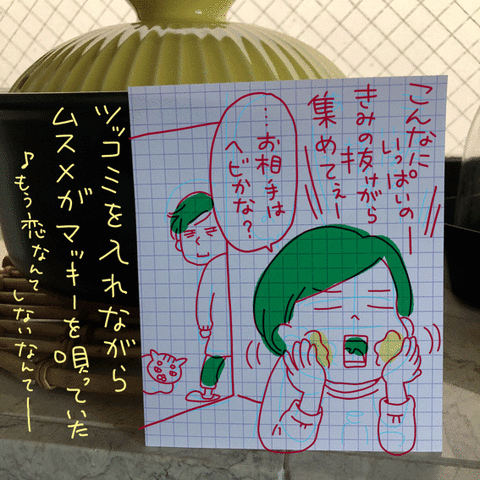 こんなに
いっぱいのー
きみの抜けがら
集めてぇー
…お相手は
ヘビかな？
ツッコミを入れながら
ムスメがマッキーを唄っていた
♪もう恋なんて
しないなんてー